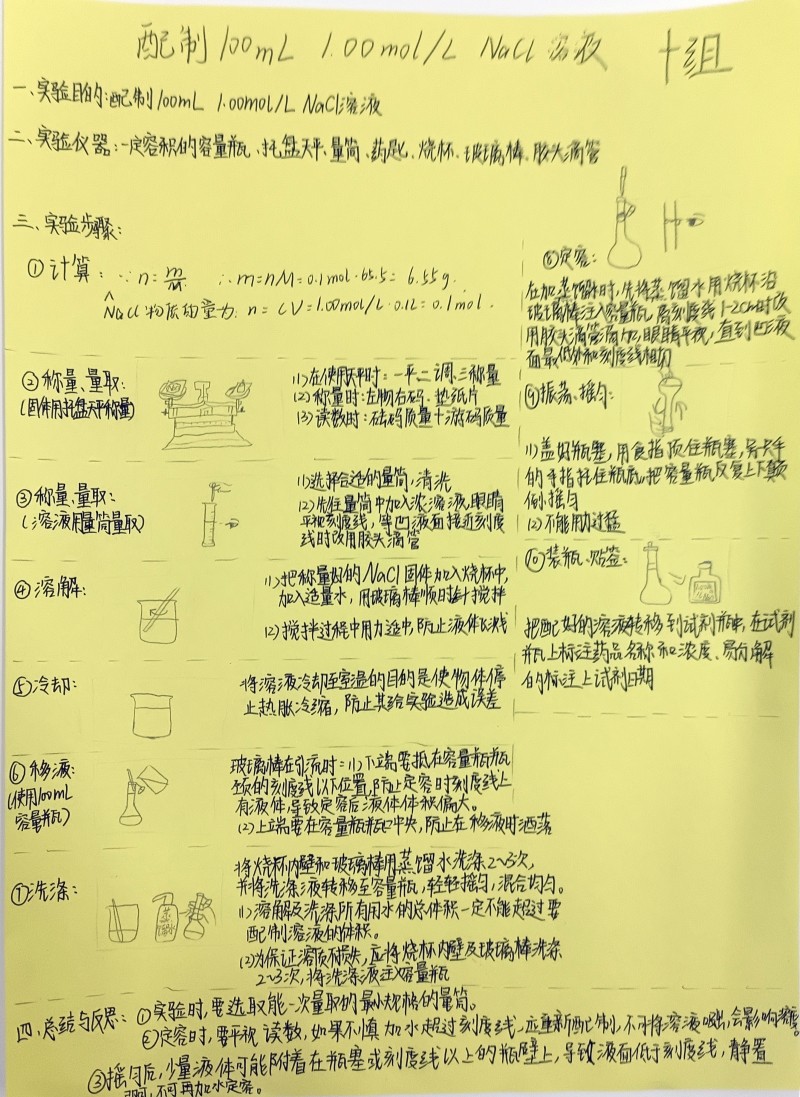 配制100mL 1.00mol/L NaCl溶液 十组
一、实验目的:配制100mL 1.00mol/L NaCl溶液
二、实验仪器:一定容积的容量瓶、托盘天平、量筒、药匙、烧杯、玻璃棒、胶头滴管
三、实验步骤:
①计算: ∵n=m/M ∴m=nM=0.1mol·65.5=6.55g.
NaCl物质的量为: n=CV=1.00mol/L·0.1L=0.1mol.
②称量、量取:
(固体用托盘天平称量)
(1)在使用天平时:一平二调三称量
(2)称量时:左物右码、垫纸片
(3)读数时:砝码质量+游码质量
③称量、量取:
(溶液用量筒量取)
(1)选择合适的量筒,清洗
(2)先往量筒中加入浓溶液,眼睛
平视刻度线,等凹液面接近刻度
线时改用胶头滴管
④溶解:
(1)把称量好的NaCl固体加入烧杯中,
加入适量水,用玻璃棒顺时针搅拌
(2)搅拌过程中用力适中,防止液体飞溅
⑤冷却:
将溶液冷却至室温的目的是使物体停
止热胀冷缩,防止其给实验造成误差
⑥移液:
(使用100mL
容量瓶)
玻璃棒在引流时:(1)下端要抵在容量瓶瓶
颈的刻度线以下位置,防止定容时刻度线上
有液体,导致定容后液体体积偏大。
(2)上端要在容量瓶瓶口中央,防止在移液时洒落
⑦洗涤:
蒸馏水
将烧杯内壁和玻璃棒用蒸馏水洗涤2~3次,
并将洗涤液转移至容量瓶,轻轻摇匀,混合均匀。
(1)溶解及洗涤所有用水的总体积一定不能超过要
配制溶液的体积。
(2)为保证溶质不损失,应将烧杯内壁及玻璃棒洗涤
2~3次,将洗涤液注入容量瓶
⑧定容:
在加蒸馏水时,先将蒸馏水用烧杯沿
玻璃棒注入容量瓶,离刻度线1-2cm时改
用胶头滴管滴加,眼睛平视,直到凹液
面最低处和刻度线相切
⑨振荡、摇匀:
(1)盖好瓶塞,用食指顶住瓶塞,另一只手
的手指托住瓶底,把容量瓶反复上下颠
倒,摇匀
(2)不能用力过猛
⑩装瓶、贴签:
把配好的溶液转移到试剂瓶中,在试剂
瓶上标注药品名称和浓度、易分解
的标注上试剂日期
四、总结与反思:①实验时,要选取能一次量取的最小规格的量筒。
②定容时,要平视读数,如果不慎加水超过刻度线,应重新配制,不可将溶液吸出,会影响浓度。
③摇匀后,少量液体可能附着在瓶塞或刻度线以上的瓶壁上,导致液面低于刻度线,静置
即可,不可再加水定容。